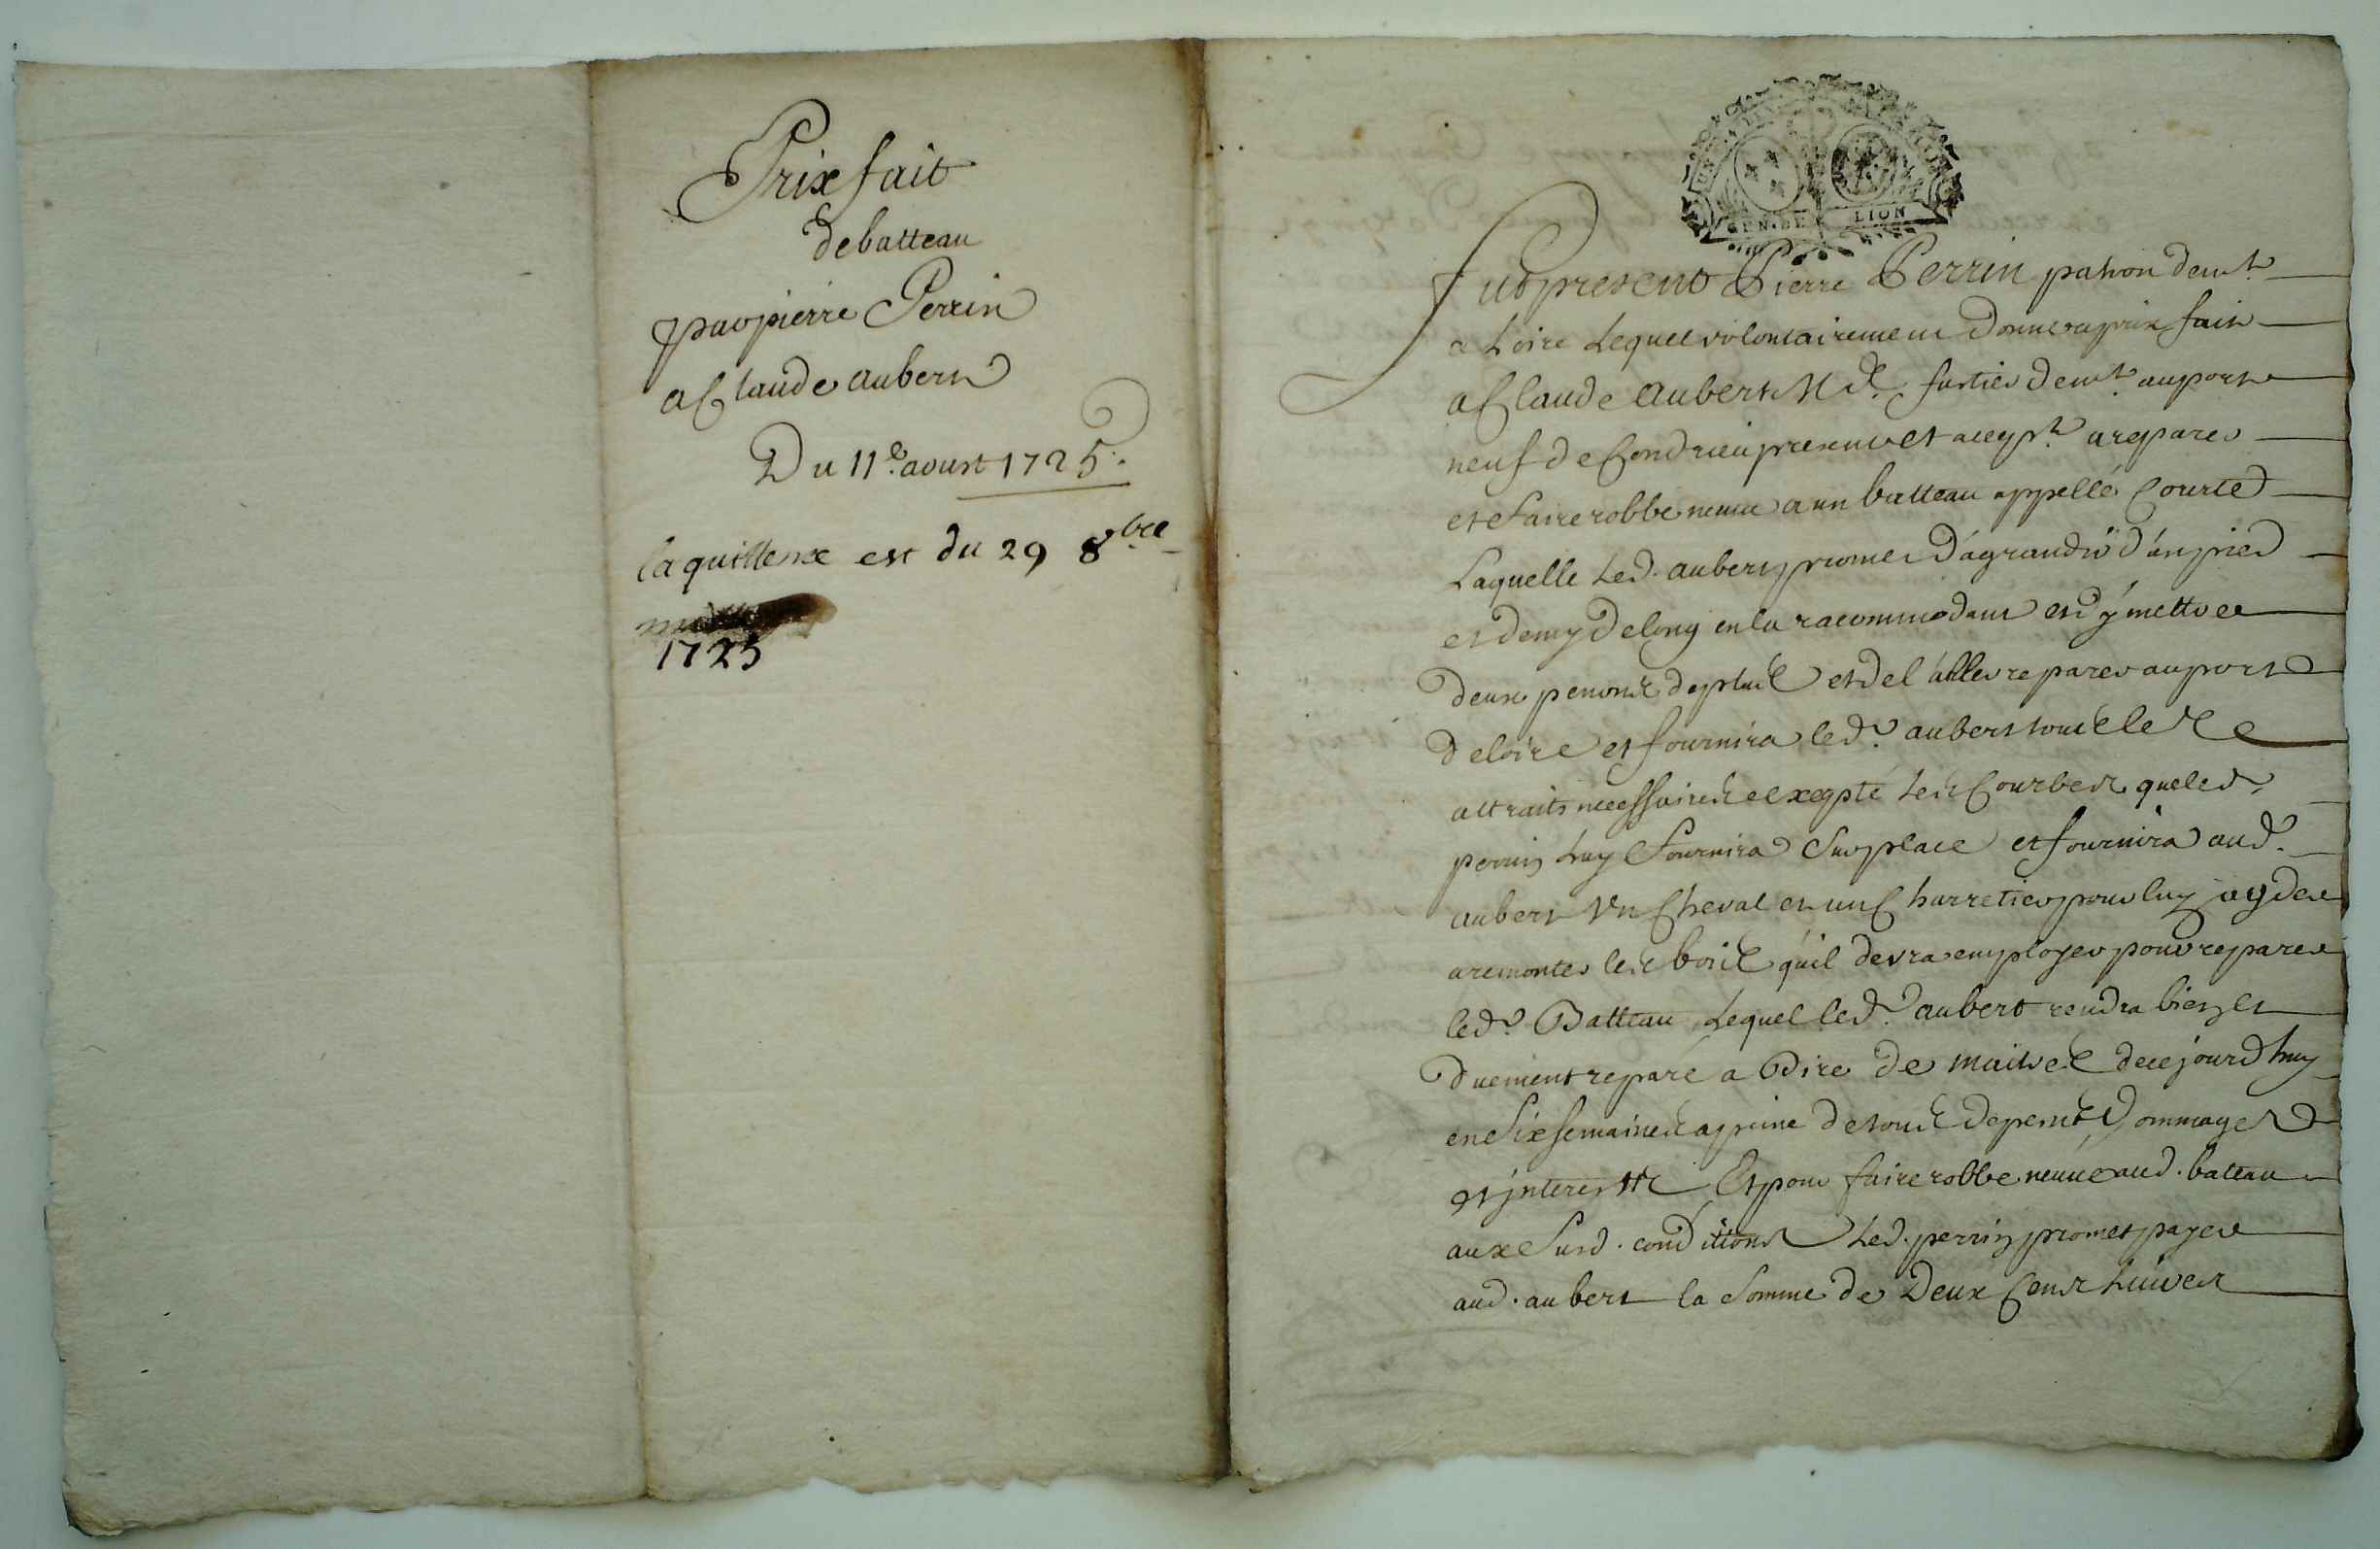 Prix fait
de batteau
par pierre Perrin
a Claude aubert
Du 11e. aoust 1725.
la quittence est du 29 8bre
1725
GEN. DE LION
fut present Pierre Perrin patron demt.
a Loire Lequel volontairement donne a prix fait
a Claude Aubert Md. fustier demt. au port
neuf de Condrieu present et accept. a reparer
et faire robbe neuve a un batteau appellé Courte
Laquelle Led. aubert promet d'agrandir d'un pied
et demy de long en la racommodant et d'y mettre
deux penons de plus et de l'aller reparer au port
de loire et fournira led. aubert tous les
attraits necessaires exepté Les Courbes que led.
perrin luy fournira sur place et fournira aud.
aubert Un Cheval et un Charretier pour luy ayder
a remonter les bois qu'il devra employer pour reparer
led. Batteau Lequel led. aubert rendra bien et
duement reparé a Dire de maitres de ce jourdhuy
en six semaines a peine de tous depens Dommages
et interests Et pour faire robbe neuve aud. bateau
aux susd. conditions Led. perrin promet payer
aud. aubert la somme de Deux Cens Livres